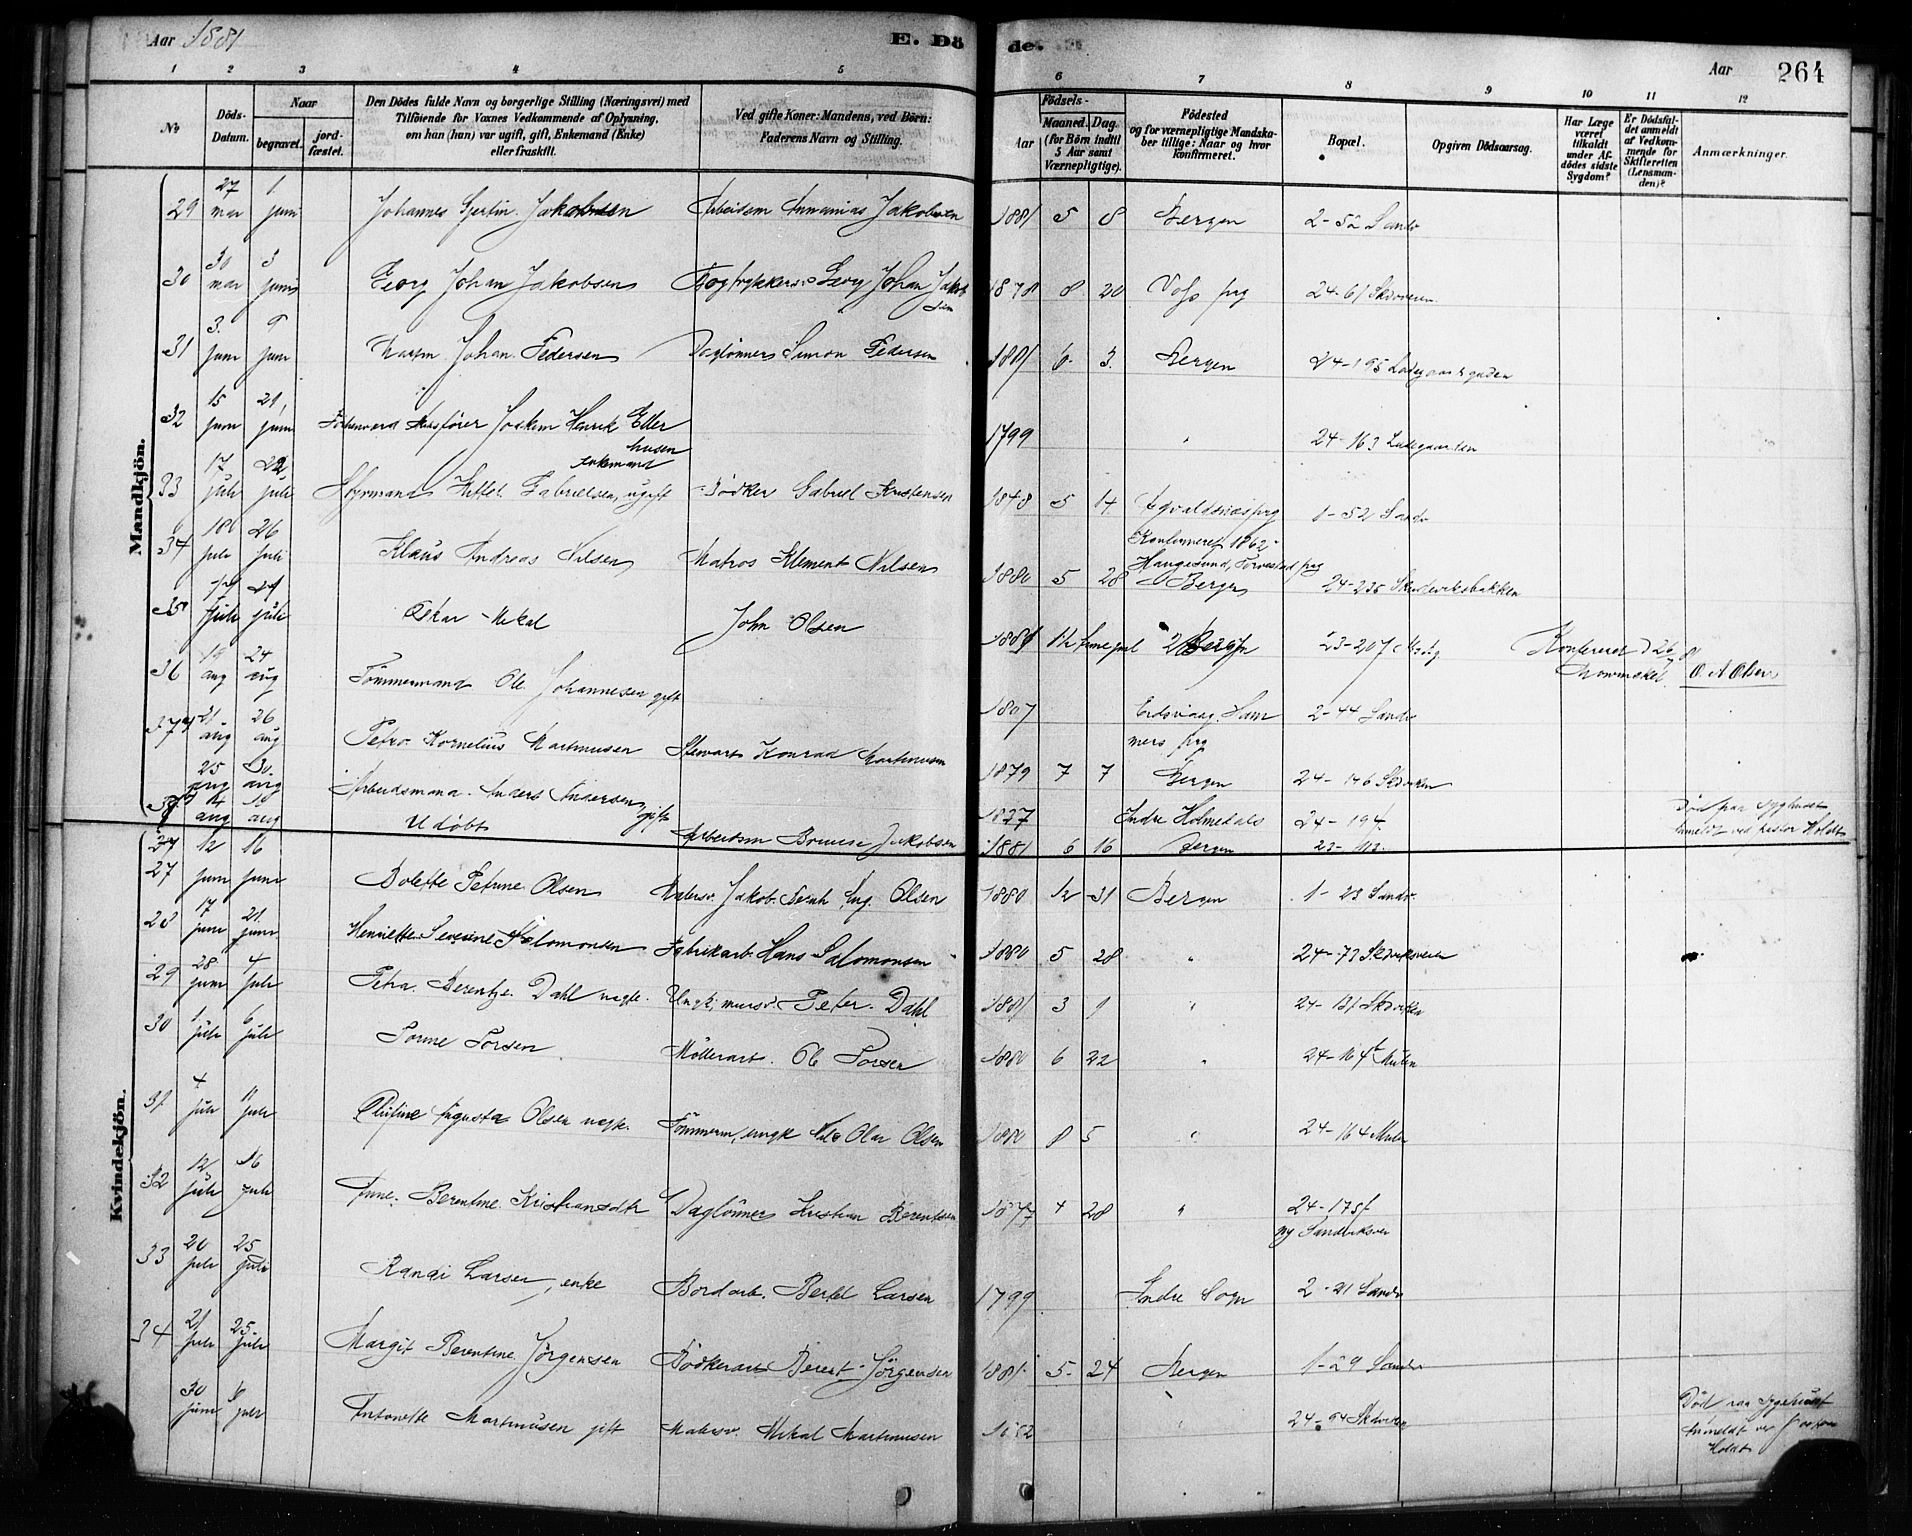 Aar 1881
E. Dö
de.
Aar
264
1 2 3 4 5 6 7 8 9 10 11 12
No
Döds-Datum.
Naar
begravet.
jord-fæstet.
Den Dödes fulde Navn og borgerlige Stilling (Næringsvei) med
Tilföiende for Voxnes Vedkommende af Oplysning,
om han (hun) var ugift, gift, Enkemand (Enke)
eller fraskilt.
Ved gifte Koner: Mandens, ved Börn:
Faderens Navn og Stilling.
Födsels-
Aar
Maaned. Dag.
(for Börn indtil
5 Aar samt
Værnepligtige).
Födested
og for værnepligtige Mandska-
ber tillige: Naar og hvor
konfirmeret.
Bopæl.
Opgiven Dödsaarsag.
Har Læge
været
tilkaldt
under Af-
dödes sidste
Sygdom?
Er Dödsfal-
det anmeldt
af Vedkom-
mende for
Skifteretten
(Lensman-
den)?
Anmærkninger.
Mandkjön.
29 27 mai 1 juni Johannes Jakobsen Arbeidsm Annanias Jakobsen 1881 5 8 Bergen 2-52 Sandv
30 30 mai 3 juni Georg Johan Jakobsen Bogtrykkersv Georg Johan Jakobsen 1878 8 20 Voss prg 24-61 Skdveien
31 3 juni 9 juni Johan Pedersen Daglönner Simon Pedersen 1881 6 3 Bergen 24-195 Ladegaardsgaden
32 15 juni 21 juni Joakim Henrik Ellerhusen enkemand 1799 24-163 Ladegaarden
33 17 juli 22 juli Styrmand Kittel Gabrielsen, ugift Bödker Gabriel Kristensen 1848 5 14 Konfirmeret 1862 Haugesund, Torvestad prg 1-52 Sandv
34 18 juli 26 juli Klaus Andreas Nilsen Matros Klement Nilsen 1880 5 28 Bergen 24-235 Skudeviksbakken
35 juli juli Oskar Mikal John Olsen 1881 Bergen 23-207
O. A Olsen
36 19 aug 24 aug Tömmermand Ole Johannesen gift 1807 Eidsvaag Hammers prg 2-44 Sandv
37 21 aug 26 aug Petro Kornelius Martinusen Stewart Konrad Martinusen 1879 7 7 Bergen 24-146 Skdviken
38 25 aug 30 aug Arbeidsmand Anders Andersen gift 1837 Indre Holmedals 24-194 Död paa Syghuset anmeldt ved pastor Holdt
14 aug 18 aug Udöbt Arbeidsm Jakobsen 1881 6 16 Bergen 23-
Kvindekjön.
27 12 juni 16 juni Bolette Petrine Olsen Malersv. Jakob Olsen 1880 12 31 Bergen 1-23 Sandv.
28 17 juni 21 juni Henriette Severine Salomonsen Fabrikarb. Hans Salomonsen 1880 5 28 " 24-73 Skdviksveien
29 28 juni 4 juli Petra Berentje Dahl uægte Ungk. mursv. Peter Dahl 1881 3 9 " 24-131 Skdviken
30 1 juli 6 juli Torsen Möllerarb. Ole Torsen 1880 6 22 " 24-164 Mulen
31 4 juli 11 juli Augusta Olsen uægte Tömmerm, ungk Nils Olai Olsen 1880 8 5 " 24-164 Mulen
32 12 juli 16 juli Anne Berentine Kristiansdtr Daglönner Kristian Berentsen 1877 4 28 " 24-175 f ny Sandviksvei
33 20 juli 25 juli Randi Larsen, enke Bordarb. Bertel Larsen 1799 Indre Sogn 2-21 Sandv
34 21 juli 25 juli Margit Berentine Jörgensen Bödkerarb Berent Jörgensen 1881 5 24 Bergen 1-29 Sandv
30 juni 6 juli Antonette Martinusen gift Malersv. Mikal Martinusen " 24-94 Skdviken Död paa Sygehuset anmeldt ved Pastor Holdt